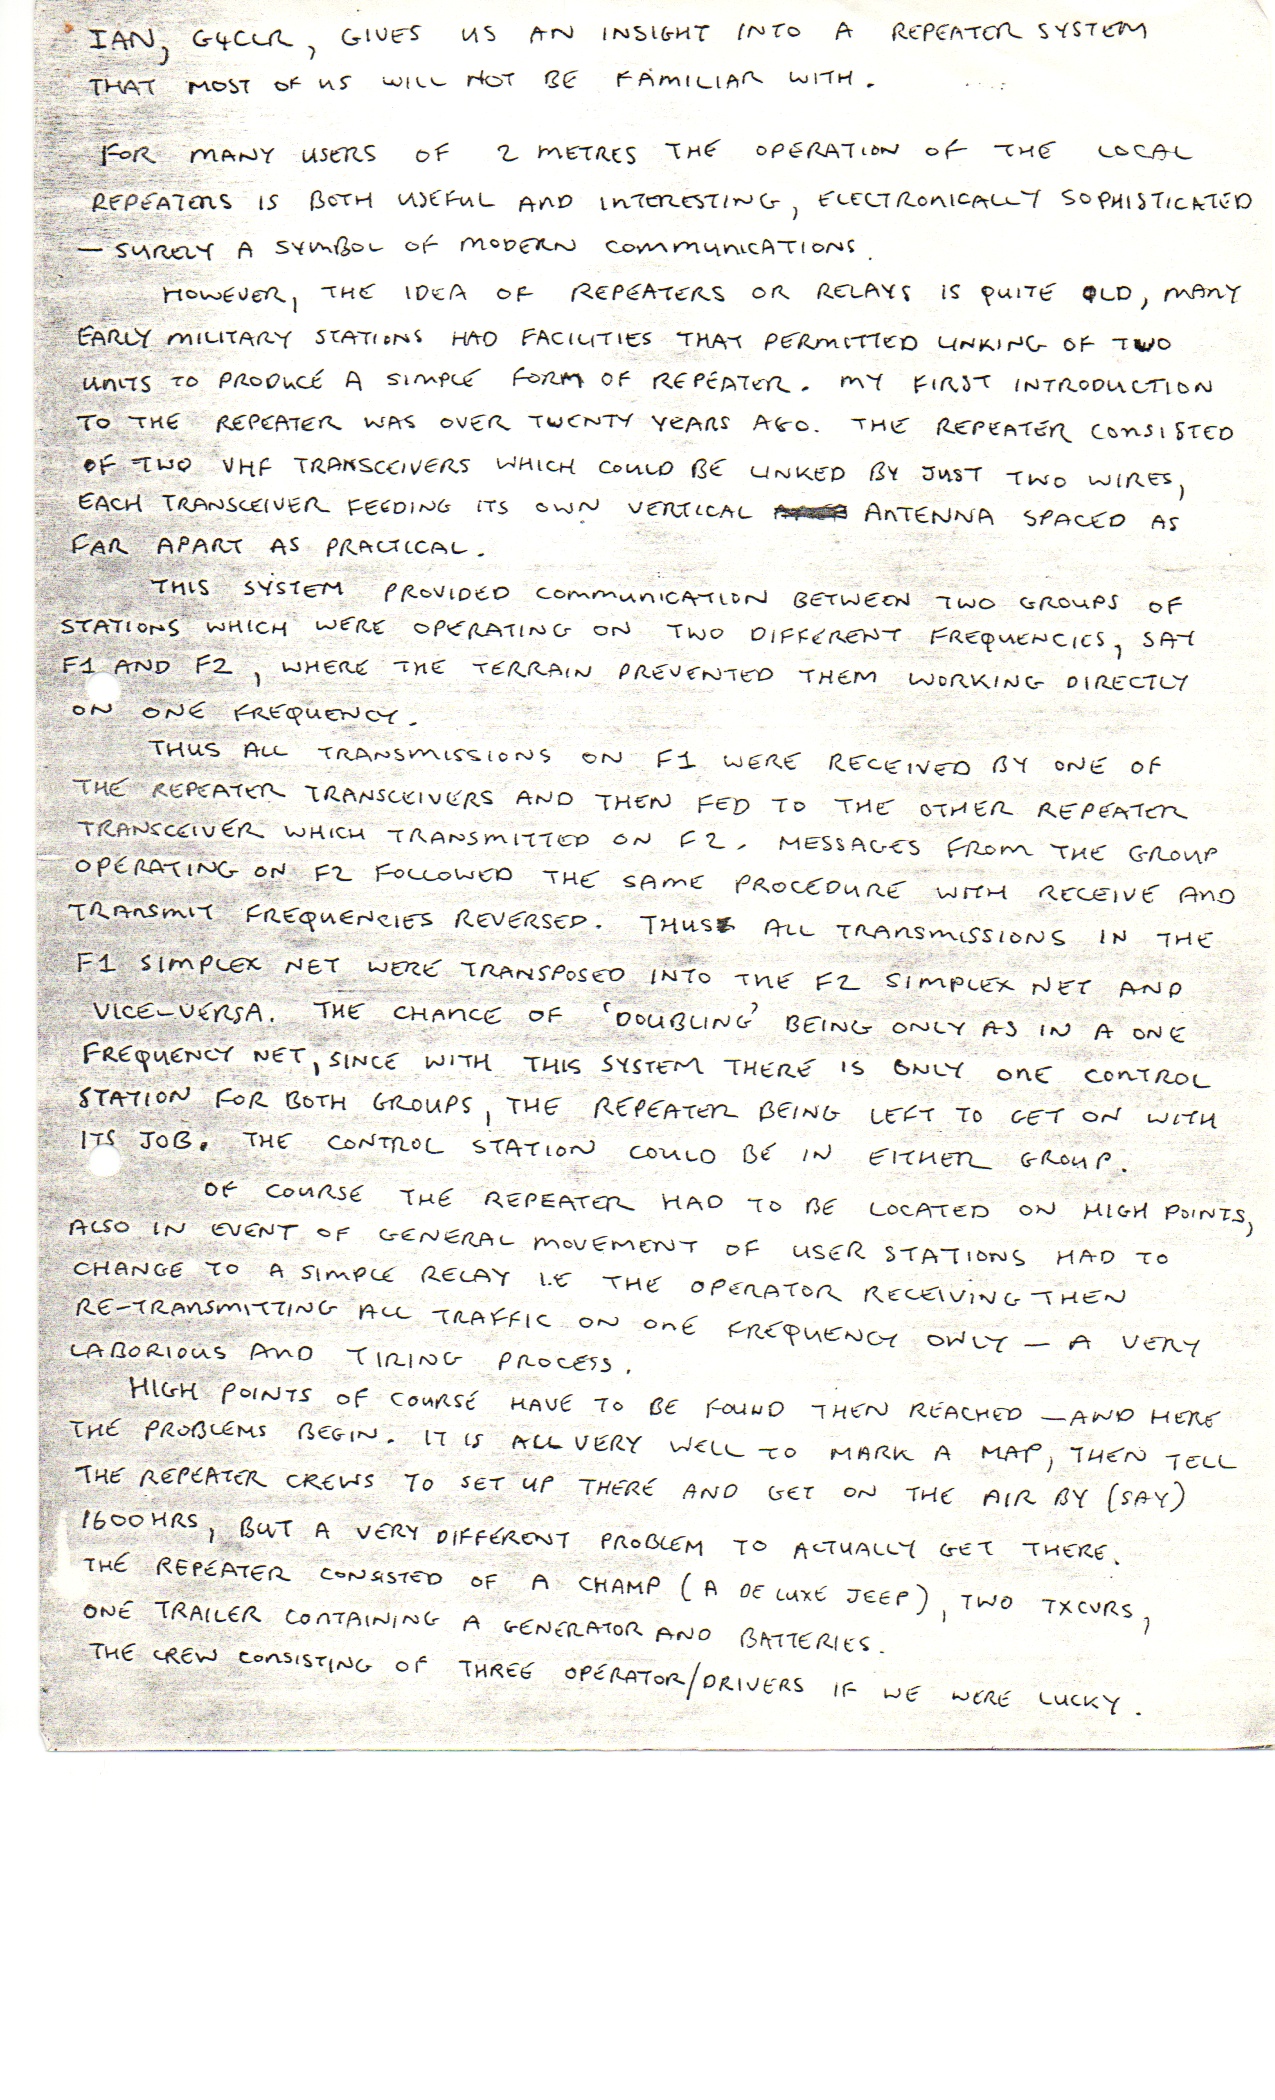 IAN, G4CLR, GIVES US AN INSIGHT INTO A REPEATER SYSTEM
THAT MOST OF US WILL NOT BE FAMILIAR WITH.
FOR MANY USERS OF 2 METRES THE OPERATION OF THE LOCAL
REPEATERS IS BOTH USEFUL AND INTERESTING, ELECTRONICALLY SOPHISTICATED
- SURELY A SYMBOL OF MODERN COMMUNICATIONS.
HOWEVER, THE IDEA OF REPEATERS OR RELAYS IS QUITE OLD, MANY
EARLY MILITARY STATIONS HAD FACILITIES THAT PERMITTED LINKING OF TWO
UNITS TO PRODUCE A SIMPLE FORM OF REPEATER. MY FIRST INTRODUCTION
TO THE REPEATER WAS OVER TWENTY YEARS AGO. THE REPEATER CONSISTED
OF TWO VHF TRANSCEIVERS WHICH COULD BE LINKED BY JUST TWO WIRES,
EACH TRANSCEIVER FEEDING ITS OWN VERTICAL ANTENNA SPACED AS
FAR APART AS PRACTICAL.
THIS SYSTEM PROVIDED COMMUNICATION BETWEEN TWO GROUPS OF
STATIONS WHICH WERE OPERATING ON TWO DIFFERENT FREQUENCIES, SAY
F1 AND F2, WHERE THE TERRAIN PREVENTED THEM WORKING DIRECTLY
ON ONE FREQUENCY.
THUS ALL TRANSMISSIONS ON F1 WERE RECEIVED BY ONE OF
THE REPEATER TRANSCEIVERS AND THEN FED TO THE OTHER REPEATER
TRANSCEIVER WHICH TRANSMITTED ON F2. MESSAGES FROM THE GROUP
OPERATING ON F2 FOLLOWED THE SAME PROCEDURE WITH RECEIVE AND
TRANSMIT FREQUENCIES REVERSED. THUS ALL TRANSMISSIONS IN THE
F1 SIMPLEX NET WERE TRANSPOSED INTO THE F2 SIMPLEX NET AND
VICE-VERSA. THE CHANCE OF 'DOUBLING' BEING ONLY AS IN A ONE
FREQUENCY NET, SINCE WITH THIS SYSTEM THERE IS ONLY ONE CONTROL
STATION FOR BOTH GROUPS, THE REPEATER BEING LEFT TO GET ON WITH
ITS JOB. THE CONTROL STATION COULD BE IN EITHER GROUP.
OF COURSE THE REPEATER HAD TO BE LOCATED ON HIGH POINTS,
ALSO IN EVENT OF GENERAL MOVEMENT OF USER STATIONS HAD TO
CHANGE TO A SIMPLE RELAY I.E THE OPERATOR RECEIVING THEN
RE-TRANSMITTING ALL TRAFFIC ON ONE FREQUENCY ONLY - A VERY
LABORIOUS AND TIRING PROCESS.
HIGH POINTS OF COURSE HAVE TO BE FOUND THEN REACHED - AND HERE
THE PROBLEMS BEGIN. IT IS ALL VERY WELL TO MARK A MAP, THEN TELL
THE REPEATER CREWS TO SET UP THERE AND GET ON THE AIR BY (SAY)
1600HRS, BUT A VERY DIFFERENT PROBLEM TO ACTUALLY GET THERE.
THE REPEATER CONSISTED OF A CHAMP (A DE LUXE JEEP), TWO TXCVRS,
ONE TRAILER CONTAINING A GENERATOR AND BATTERIES.
THE CREW CONSISTING OF THREE OPERATOR/DRIVERS IF WE WERE LUCKY.